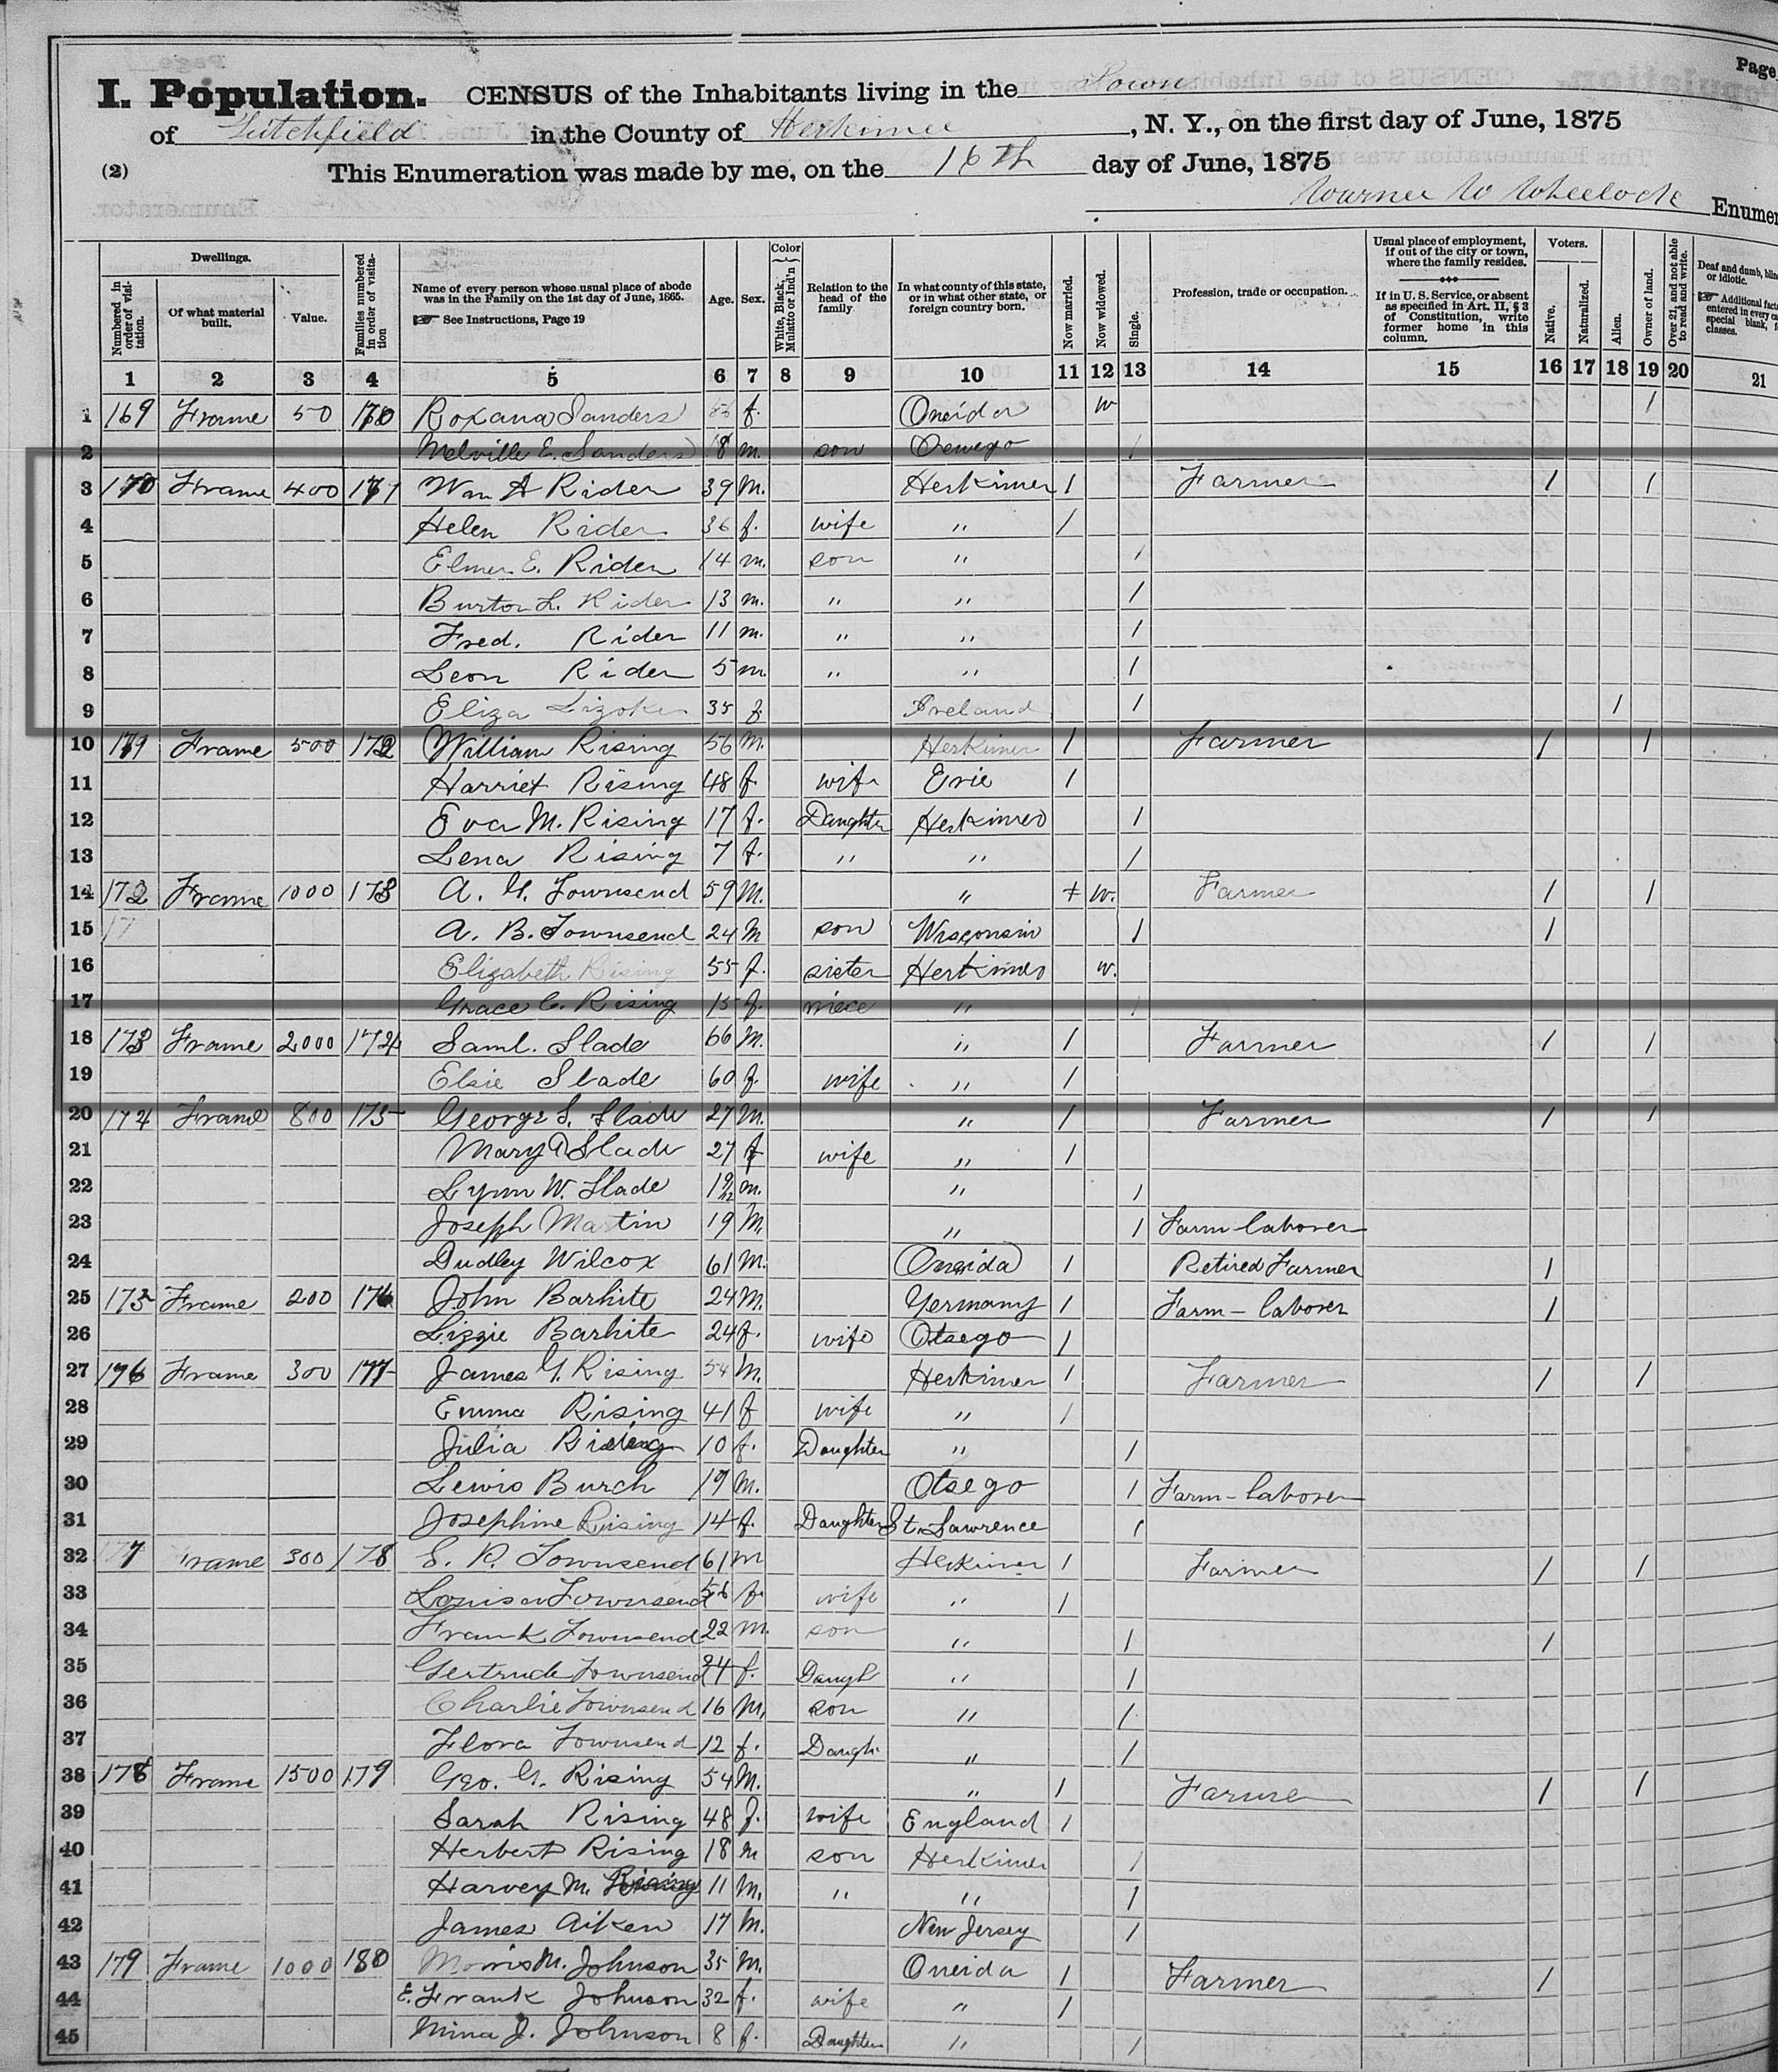 Page
I. Population. CENSUS of the Inhabitants living in the Town
of Litchfield in the County of Herkimer, N. Y., on the first day of June, 1875
(2) This Enumeration was made by me, on the 16th day of June, 1875
W Wheelock Enumer
Dwellings.
Numbered in order of visitation.
Of what material built.
Value.
Families numbered in order of visitation
Name of every person whose usual place of abode was in the Family on the 1st day of June, 1865.
☞ See Instructions, Page 19
Age.
Sex.
Color
White, Black, Mulatto or Ind'n
Relation to the head of the family
In what county of this state, or in what other state, or foreign country born.
Now married.
Now widowed.
Single.
Profession, trade or occupation.
Usual place of employment, if out of the city or town, where the family resides.
If in U. S. Service, or absent as specified in Art. II, § 3 of Constitution, write former home in this column.
Voters.
Native.
Naturalized.
Alien.
Owner of land.
Over 21, and not able to read and write.
Deaf and dumb, blin or idiotic.
☞ Additional fact entered in every ca special blank, f classes.
1 2 3 4 5 6 7 8 9 10 11 12 13 14 15 16 17 18 19 20 21
1 169 Frame 50 170 Roxana Sanders f. Oneida w 1
2 Melville E. Sanders 18 m. son Oswego 1
3 170 Frame 400 171 Wm A Rider 39 M. Herkimer 1 Farmer 1 1
4 Helen Rider 36 f. wife " 1
5 Elmer E. Rider 14 m. son " 1
6 Burton L. Rider 13 m. " " 1
7 Fred. Rider 11 m. " " 1
8 Leon Rider 5 m. " " 1
9 Eliza 35 f. Ireland 1 1
10 171 Frame 500 172 William Rising 56 M. Herkimer 1 Farmer 1 1
11 Harriet Rising 48 f. wife Erie 1
12 Eva M. Rising 17 f. Daughter Herkimer 1
13 Lena Rising 7 f. " " 1
14 172 Frame 1000 173 A. G. Townsend 59 M. " w. Farmer 1 1
15 17 A. B. Townsend 24 M son Wisconsin 1 1
16 Elizabeth Rising 55 f. sister Herkimer w.
17 Grace C. Rising 15 f. niece " 1
18 173 Frame 2000 174 Saml. Slade 66 M. " 1 Farmer 1 1
19 Elsie Slade 60 f wife " 1
20 174 Frame 800 175 George S. Slade 27 M. " 1 Farmer 1 1
21 Mary D Slade 27 f wife " 1
22 Lynn W. Slade 1 9/12 m. " 1
23 Joseph Martin 19 M. " 1 Farm laborer
24 Dudley Wilcox 61 M. Oneida 1 Retired Farmer 1
25 175 Frame 200 176 John Barhite 24 M. Germany 1 Farm - laborer 1
26 Lizzie Barhite 24 f. wife Otsego 1
27 176 Frame 300 177 James G. Rising 54 M. Herkimer 1 Farmer 1 1
28 Emma Rising 41 f wife " 1
29 Julia Rising 10 f. Daughter " 1
30 Lewis Burch 19 M. Otsego 1 Farm - laborer
31 Josephine Rising 14 f. Daughter St. Lawrence 1
32 177 Frame 300 178 S. P. Townsend 61 m Herkimer 1 Farmer 1 1
33 Louisa Townsend 56 f. wife " 1
34 Frank Townsend 22 M. son " 1 1
35 Gertrude Townsend 24 f. Daugh " 1
36 Charlie Townsend 16 M, son " 1
37 Flora Townsend 12 f. Daugh. " 1
38 178 Frame 1500 179 Geo. G. Rising 54 M. " 1 Farmer 1 1
39 Sarah Rising 48 f. wife England 1
40 Herbert Rising 18 m son Herkimer 1
41 Harvey M. Rising 11 M. " " 1
42 James Aiken 17 M. New Jersey 1
43 179 Frame 1000 180 Morris M. Johnson 35 M. Oneida 1 Farmer 1
44 E. Frank Johnson 32 f. wife " 1
45 Mina J. Johnson 8 f. Daughter " 1